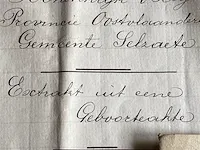 Provincie Oostvlaanderen
Gemeente Selzaete
Extrakt uit eene
Geboorteakte